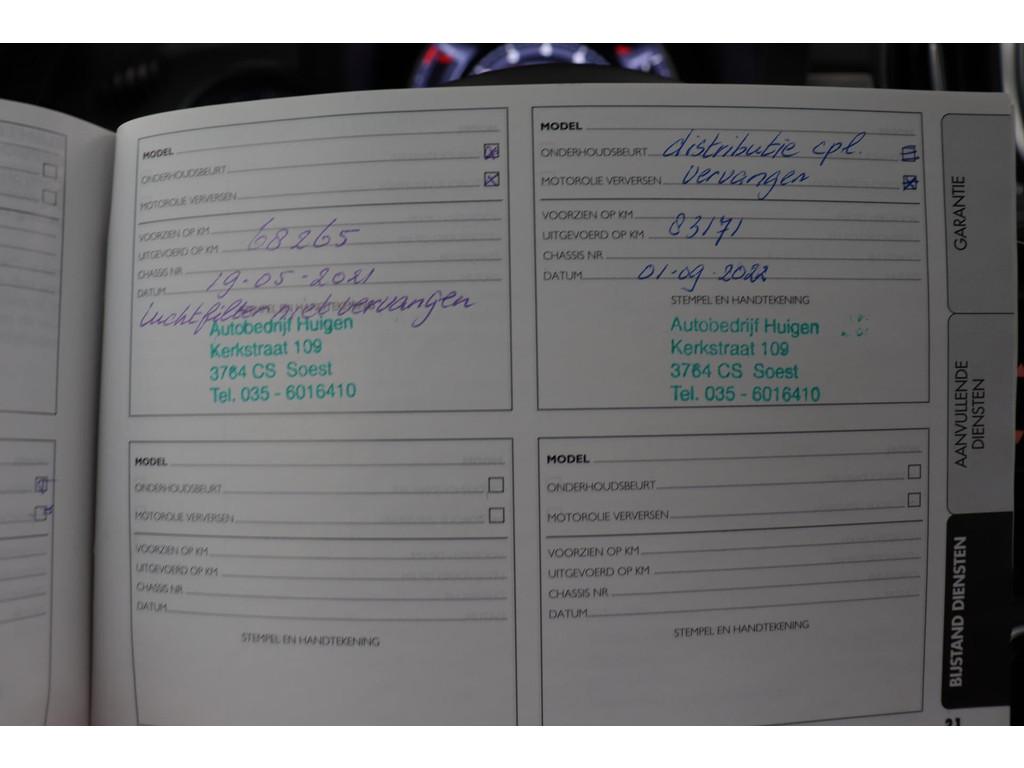 MODEL
ONDERHOUDSBEURT
MOTOROLIE VERVERSEN
VOORZIEN OP KM
UITGEVOERD OP KM 68265
CHASSIS NR.
DATUM 19-05-2021
STEMPEL EN HANDTEKENING
Luchtfilter niet vervangen
Autobedrijf Huigen
Kerkstraat 109
3764 CS Soest
Tel. 035 - 6016410
MODEL
ONDERHOUDSBEURT distributie cpl.
MOTOROLIE VERVERSEN vervangen
VOORZIEN OP KM
UITGEVOERD OP KM 83171
CHASSIS NR.
DATUM 01-09-2022
STEMPEL EN HANDTEKENING
Autobedrijf Huigen
Kerkstraat 109
3764 CS Soest
Tel. 035 - 6016410
MODEL
ONDERHOUDSBEURT
MOTOROLIE VERVERSEN
VOORZIEN OP KM
UITGEVOERD OP KM
CHASSIS NR.
DATUM
STEMPEL EN HANDTEKENING
MODEL
ONDERHOUDSBEURT
MOTOROLIE VERVERSEN
VOORZIEN OP KM
UITGEVOERD OP KM
CHASSIS NR.
DATUM
STEMPEL EN HANDTEKENING
GARANTIE
AANVULLENDE
DIENSTEN
BIJSTAND DIENSTEN